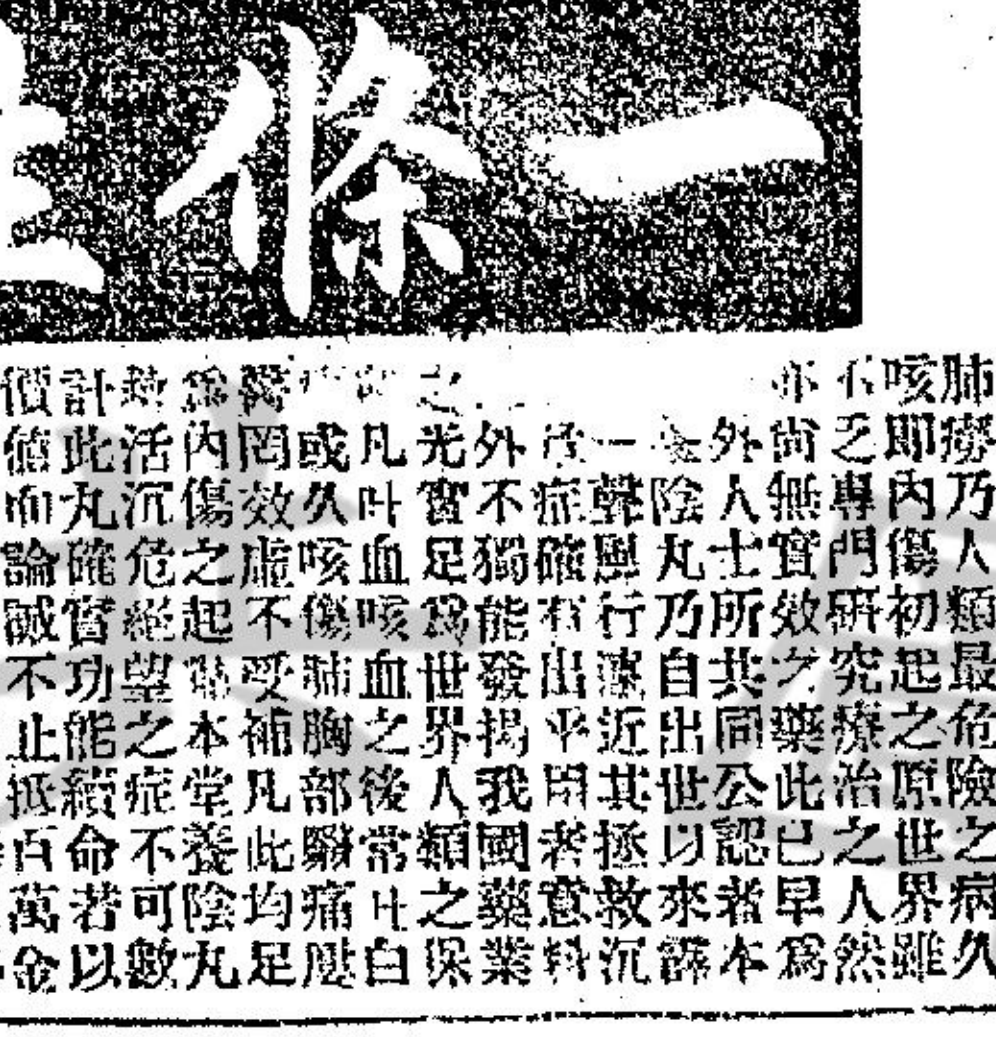 一條
肺癆乃人類最危險之病久
咳即內傷初起之原世界雖
不乏專門研究療治之人然
亦尚無實效之藥此已早爲
外人士所共同公認者本
陰丸乃自出世以來譁
一聲與行遠近其拯救沉
症確有出乎用者意料
外不獨能發揚我國藥業
之光實足爲世界人類之保
凡吐血咳血之後常吐白
或久咳傷肺胸部痛
醫罔效虛不受補凡此均足
爲內傷之起點本堂養陰丸
救活沉危絕望之症不可數
計此丸確實功能續命若以
價值而論誠不止抵百萬金